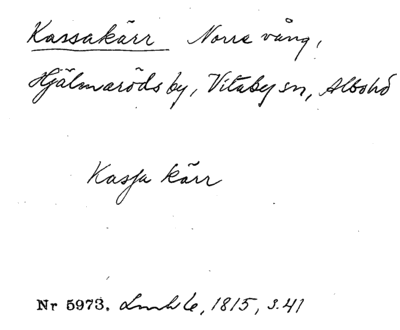 Kassakärr Norre vång,
Hjälmaröds by, Vitaby sn, Albohd
Kassa kärr
Nr 5973. 6, 1815, s. 41